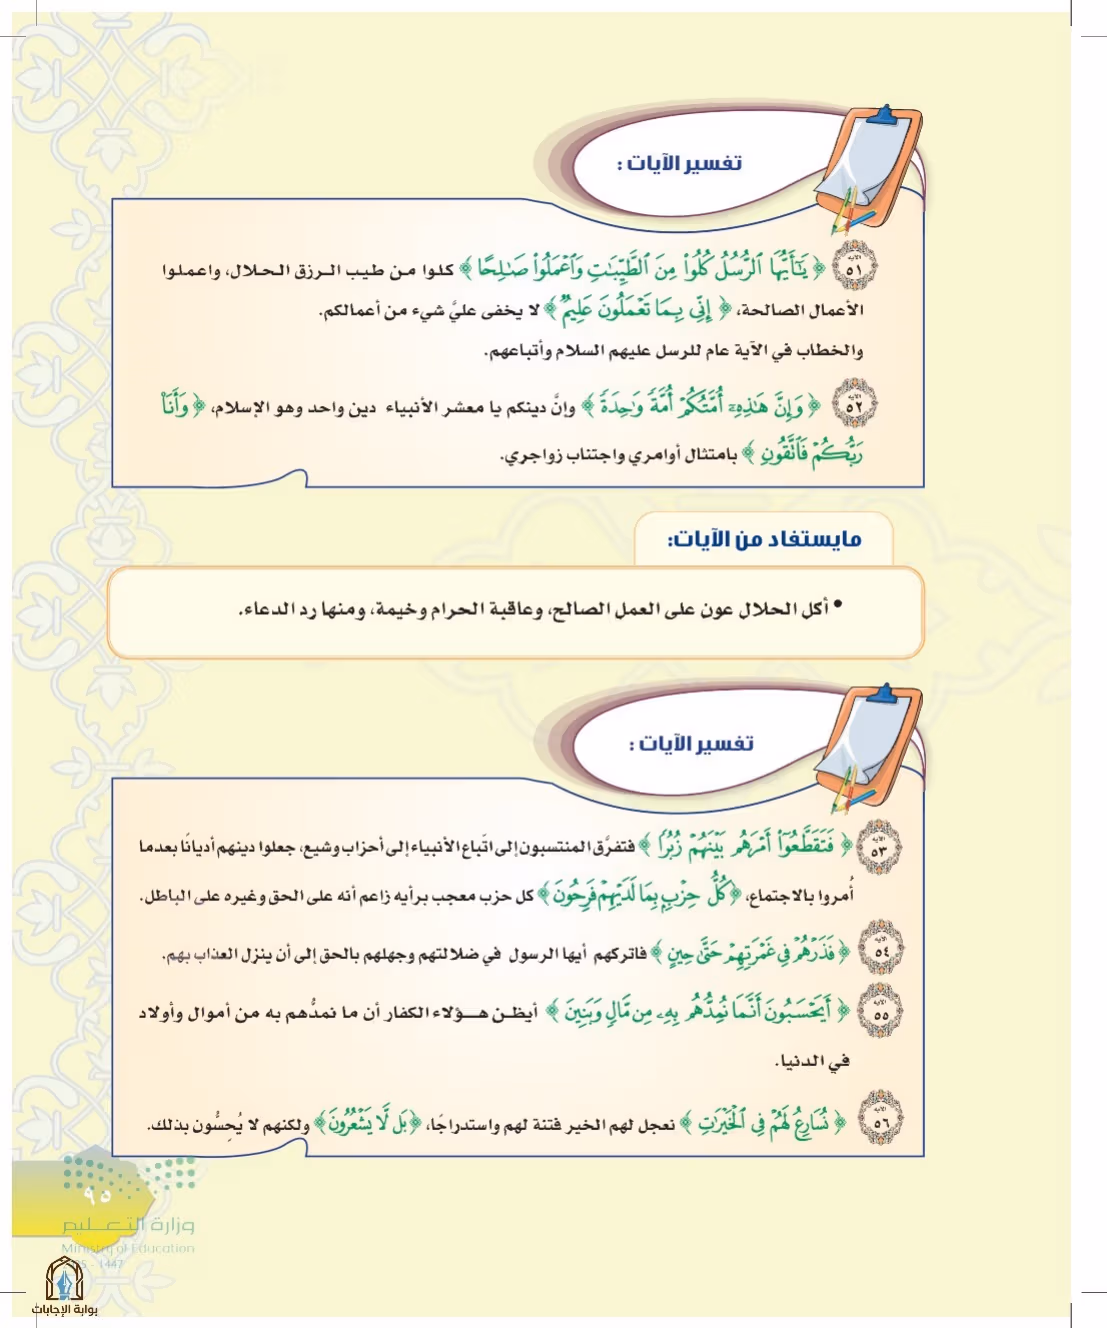 تفسير الآيات :
الآية ٥١ ﴿ يَٰٓأَيُّهَا ٱلرُّسُلُ كُلُوا۟ مِنَ ٱلطَّيِّبَٰتِ وَٱعْمَلُوا۟ صَٰلِحًا ﴾ كلوا من طيب الرزق الحلال، واعملوا
الأعمال الصالحة، ﴿ إِنِّى بِمَا تَعْمَلُونَ عَلِيمٌ ﴾ لا يخفى عليَّ شيء من أعمالكم.
والخطاب في الآية عام للرسل عليهم السلام وأتباعهم.
الآية ٥٢ ﴿ وَإِنَّ هَٰذِهِۦٓ أُمَّتُكُمْ أُمَّةً وَٰحِدَةً ﴾ وإنَّ دينكم يا معشر الأنبياء دين واحد وهو الإسلام، ﴿ وَأَنَا۠
رَبُّكُمْ فَٱتَّقُونِ ﴾ بامتثال أوامري واجتناب زواجري.
مايستفاد من الآيات:
• أكل الحلال عون على العمل الصالح، وعاقبة الحرام وخيمة، ومنها رد الدعاء.
تفسير الآيات :
الآية ٥٣ ﴿ فَتَقَطَّعُوٓا۟ أَمْرَهُم بَيْنَهُمْ زُبُرًا ﴾ فتفرَّق المنتسبون إلى اتّباع الأنبياء إلى أحزاب وشيع، جعلوا دينهم أديانًا بعدما
أُمروا بالاجتماع، ﴿ كُلُّ حِزْبٍ بِمَا لَدَيْهِمْ فَرِحُونَ ﴾ كل حزب معجب برأيه زاعم أنه على الحق وغيره على الباطل.
الآية ٥٤ ﴿ فَذَرْهُمْ فِى غَمْرَتِهِمْ حَتَّىٰ حِينٍ ﴾ فاتركهم أيها الرسول في ضلالتهم وجهلهم بالحق إلى أن ينزل العذاب بهم.
الآية ٥٥ ﴿ أَيَحْسَبُونَ أَنَّمَا نُمِدُّهُم بِهِۦ مِن مَّالٍ وَبَنِينَ ﴾ أيظن هـؤلاء الكفار أن ما نمدُّهم به من أموال وأولاد
في الدنيا.
الآية ٥٦ ﴿ نُسَارِعُ لَهُمْ فِى ٱلْخَيْرَٰتِ ﴾ نعجل لهم الخير فتنة لهم واستدراجًا، ﴿ بَل لَّا يَشْعُرُونَ ﴾ ولكنهم لا يُحِسُّون بذلك.
٩٥
وزارة التعليم
Ministry of Education
1447
بوابة الإجابات